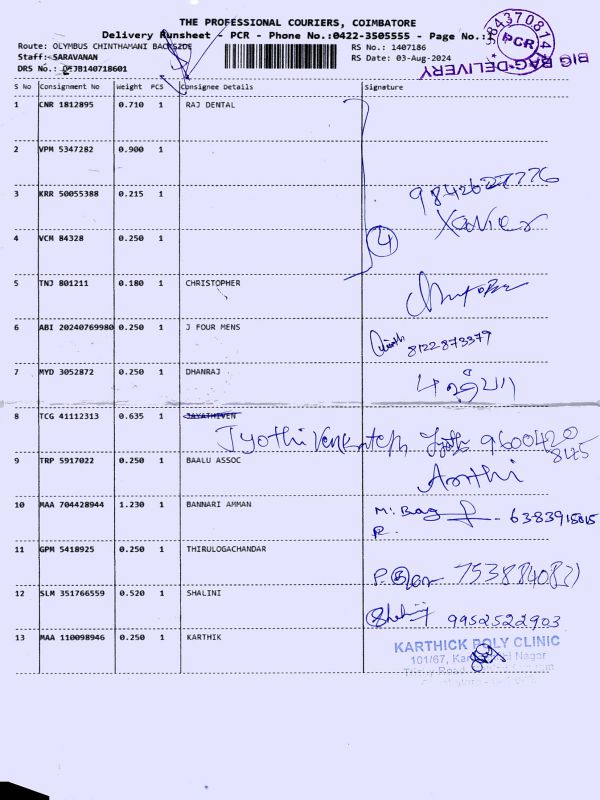 THE PROFESSIONAL COURIERS, COIMBATORE
Delivery Runsheet - PCR - Phone No.:0422-3505555 - Page No.:
Route: OLYMBUS CHINTHAMANI BACKSIDE RS No.: 1407186
Staff: SARAVANAN RS Date: 03-Aug-2024
DRS No.: 140718601
PCR
BIG BAG-DELIVERY
S No Consignment No Weight PCS Consignee Details Signature
1 CNR 1812895 0.710 1 RAJ DENTAL
2 VPM 5347282 0.900 1
3 KRR 50055388 0.215 1
Xavier
4 VCM 84328 0.250 1 4
5 TNJ 801211 0.180 1 CHRISTOPHER
6 ABI 20240769980 0.250 1 J FOUR MENS 8122873379
7 MYD 3052872 0.250 1 DHANRAJ
8 TCG 41112313 0.635 1 JAYATHIVEN
Jyothi Venkatesh 9600420
8475
9 TRP 5917022 0.250 1 BAALU ASSOC Aarthi
10 MAA 704428944 1.230 1 BANNARI AMMAN
11 GPM 5418925 0.250 1 THIRULOGACHANDAR
12 SLM 351766559 0.520 1 SHALINI Shalini 9952522903
13 MAA 110098946 0.250 1 KARTHIK
KARTHICK POLY CLINIC
101/67, Nagar